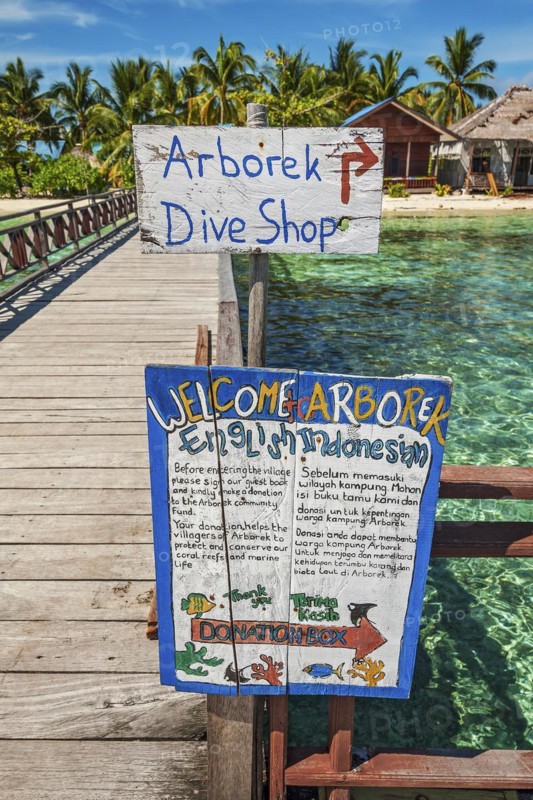 Arborek
Dive Shop
WELCOME to ARBOREK
English Indonesian
Before entering the village
please sign our guest book
and kindly make a donation
to the Arborek community
Fund.
Your donation helps the
villagers of Arborek to
protect and conserve our
coral reefs and marine
life
Sebelum memasuki
wilayah kampung. Mohon
isi buku tamu kami dan
donasi untuk kepentingan
warga kampung Arborek.
Donasi anda dapat membantu
warga kampung Arborek.
Untuk menjaga dan memelihara
kehidupan terumbu karang dan
biota laut di Arborek...
Thank
you
Terima
Kasih
DONATION BOX
PHOTO12